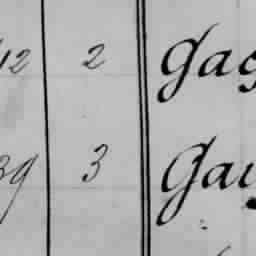 12 2 Gag
39 3 Gau